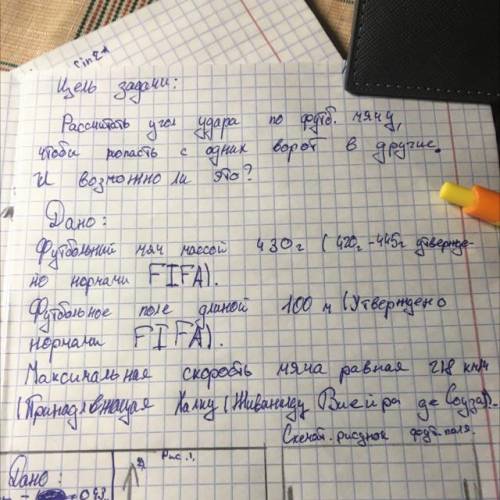 sin2α
Цель задачи:
Рассчитать угол удара по футб. мячу,
чтобы попасть с одних ворот в другие.
И возможно ли это?
Дано:
Футбольный мяч массой 430г (420г-445г утвержде-
но нормами FIFA).
Футбольное поле длиной 100 м (Утверждено
нормами FIFA).
Максимальная скорость мяча равная 218 км/ч
(Принадлежащая Халку (Живанилду Виейра де Соуза)).
Схемат. рисунок футб. поля.
Рис.1.
Дано: